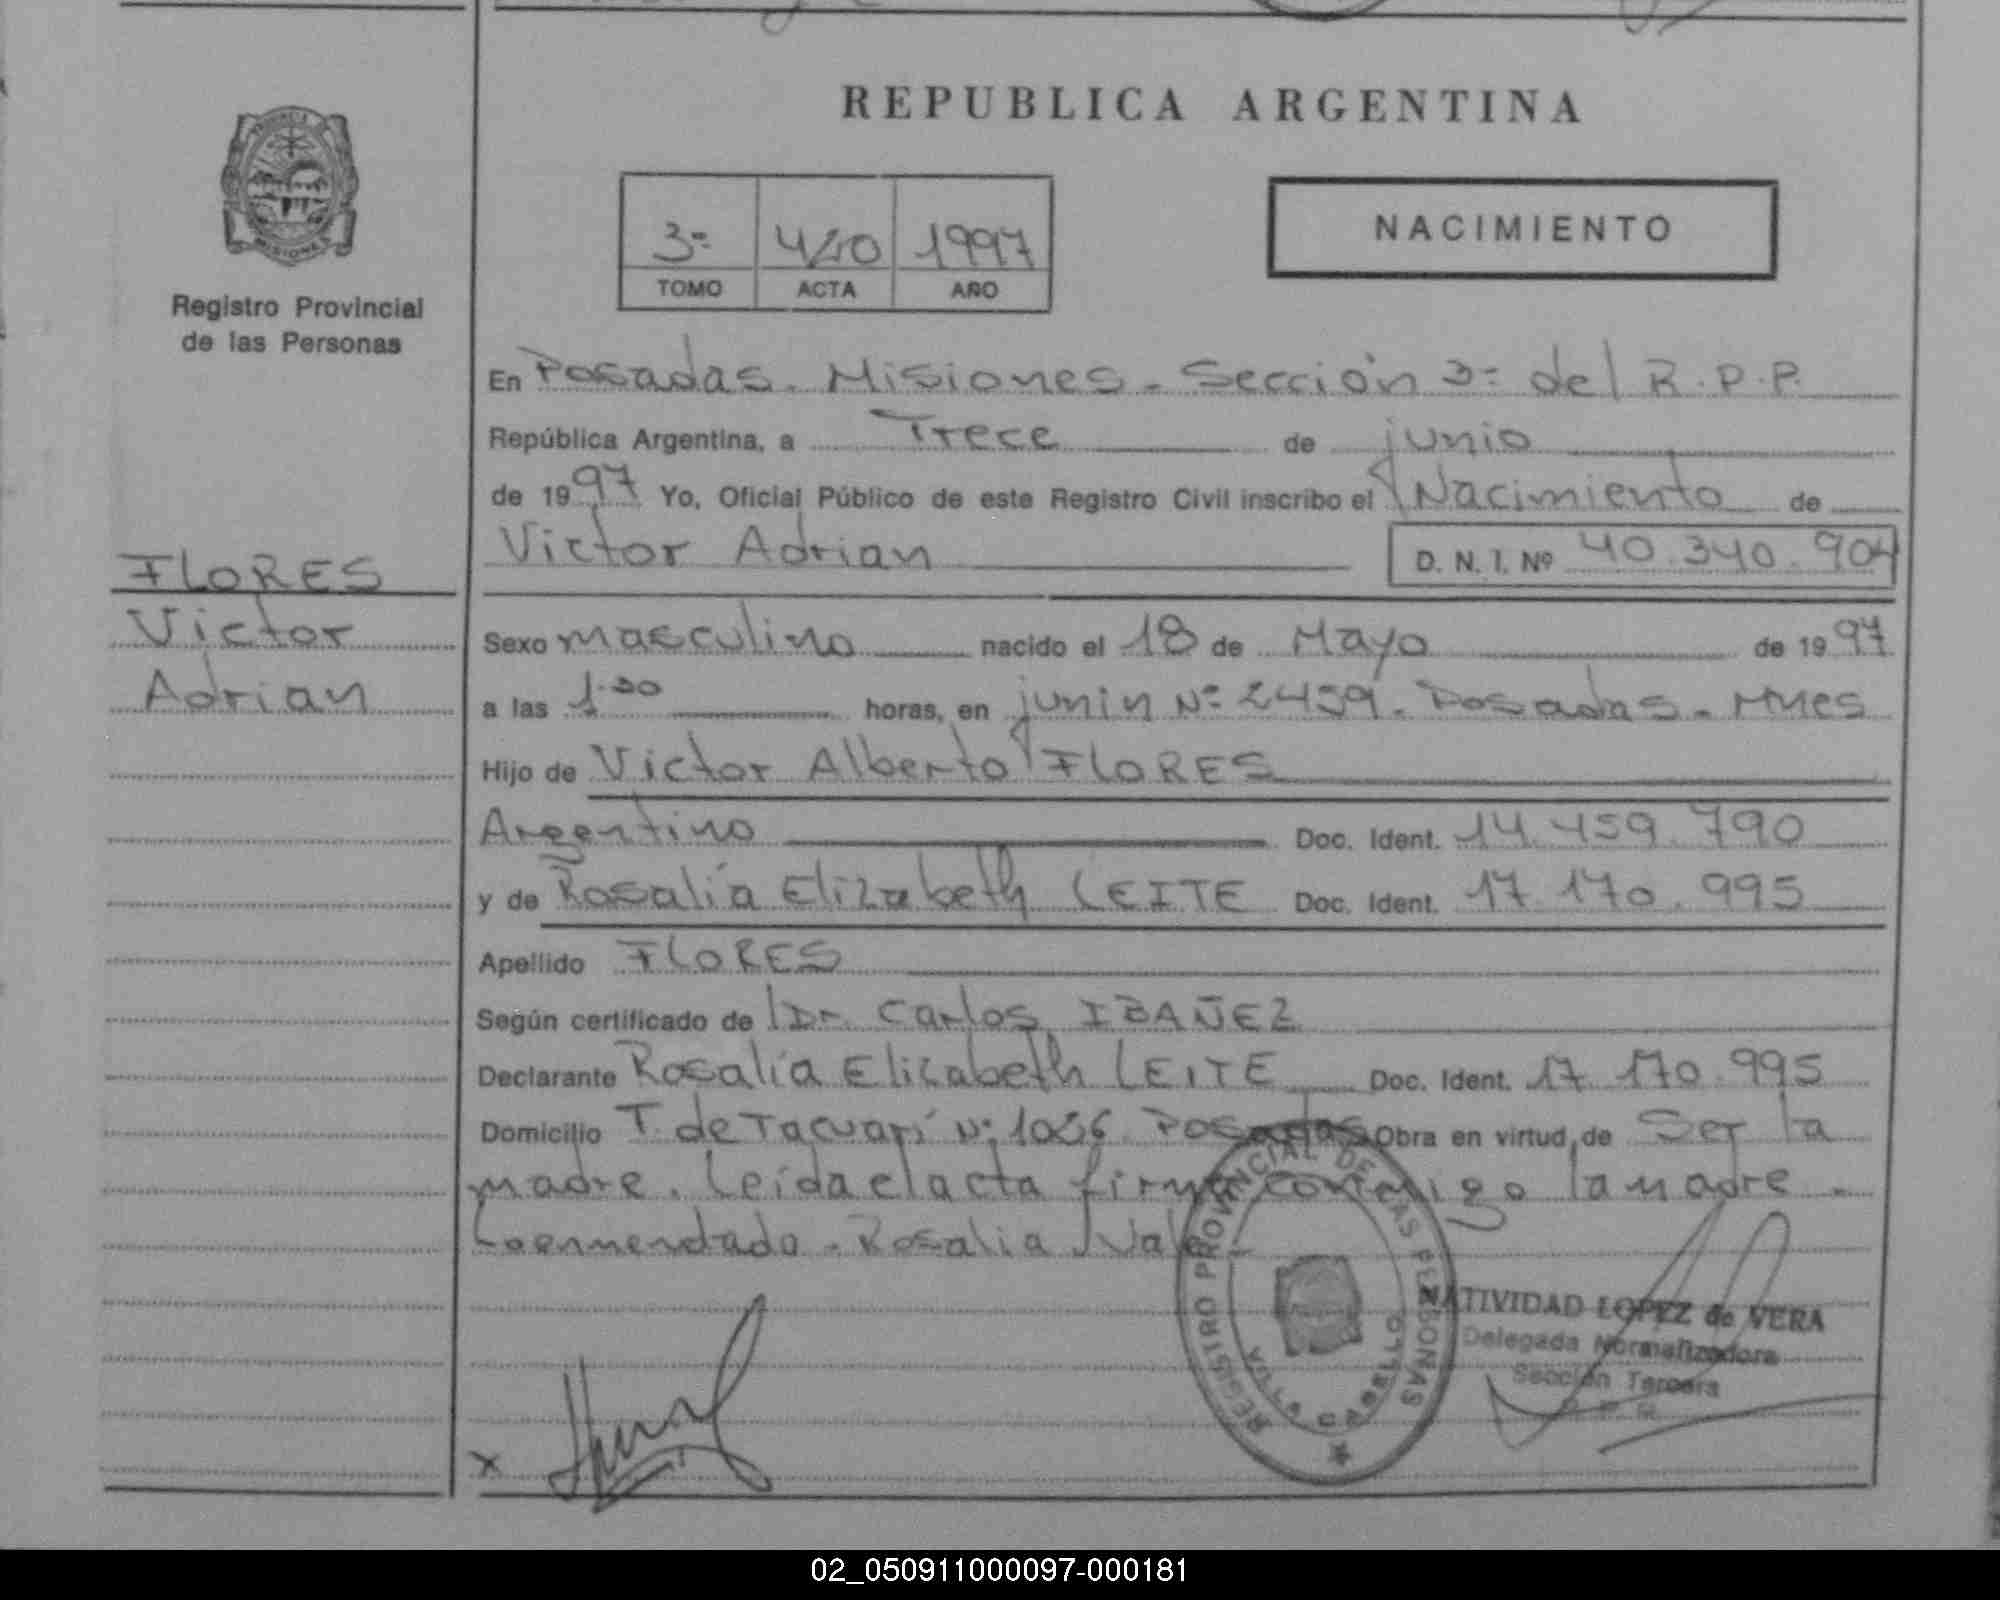 REPUBLICA ARGENTINA
NACIMIENTO
3º 420 1997
TOMO ACTA AÑO
Registro Provincial
de las Personas
En Posadas. Misiones - Sección 3º del R.P.P.
República Argentina, a Trece de junio
de 1997 Yo, Oficial Público de este Registro Civil inscribo el Nacimiento de
Victor Adrian D. N. I. Nº 40.340.904
FLORES
Victor
Adrian
Sexo masculino nacido el 18 de Mayo de 1997
a las horas, en junin Nº 2459. Posadas - Mnes
Hijo de Victor Alberto FLORES
Argentino Doc. Ident. 14.459.790
y de Rosalía Elizabeth LEITE Doc. Ident. 17.170.995
Apellido FLORES
Según certificado de Dr. Carlos IBAÑEZ
Declarante Rosalía Elizabeth LEITE Doc. Ident. 17.170.995
Domicilio T. de Tacuarí Nº Posadas Obra en virtud de Ser la
madre. Leida el acta firma conmigo la madre -
Lo enmendado - Rosalia Vale
REGISTRO PROVINCIAL DE LAS PERSONAS
NATIVIDAD LOPEZ de VERA
Delegada Normalizadora
Sección Tercera
R. P. P.
x
02_050911000097-000181